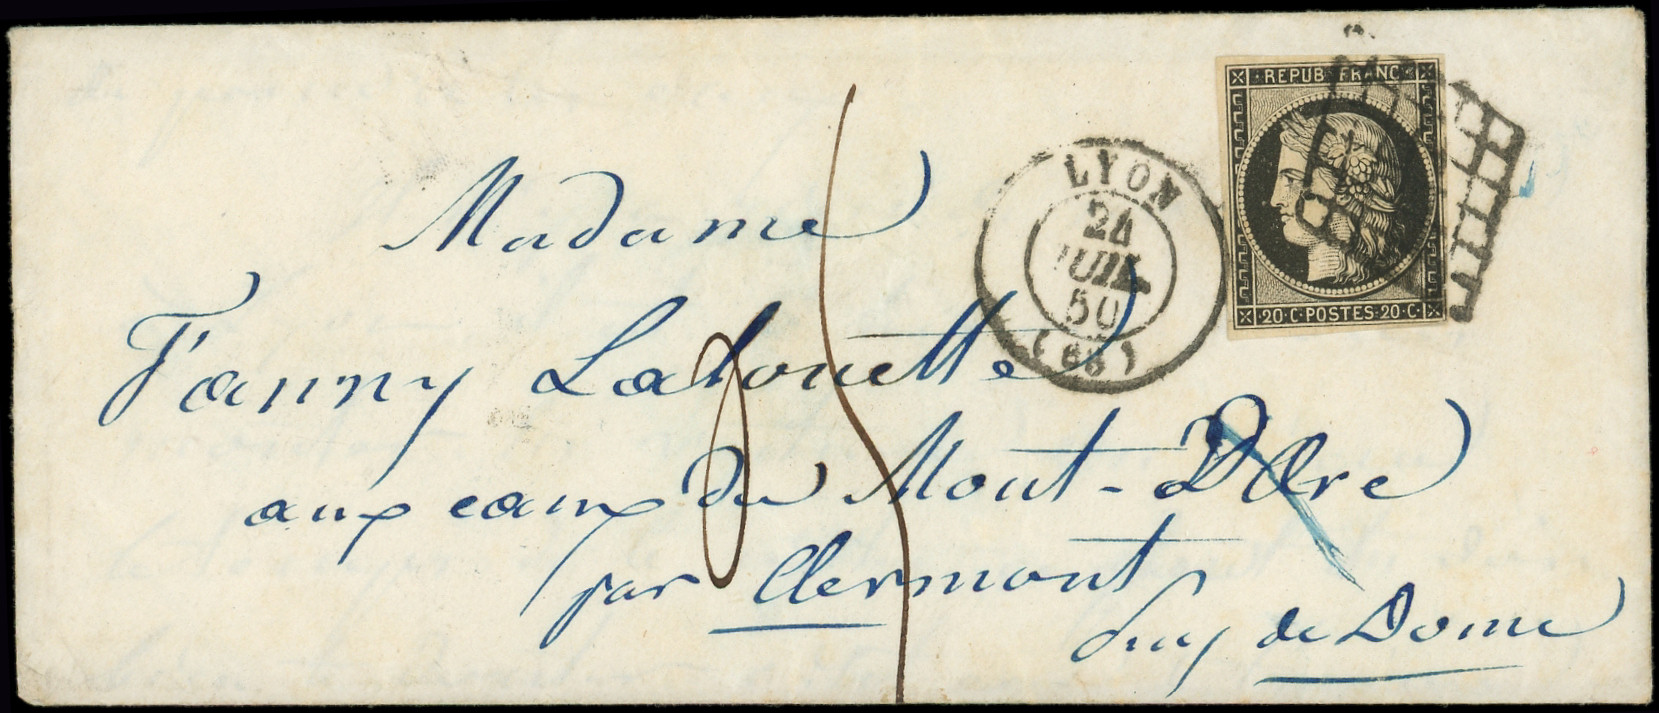 REPUB. FRANC
20·C·POSTES·20·C·
LYON
24
JUIL.
50
(68)
Madame
Fanny Lalouette
aux eaux du Mont-D'Ore
par Clermont
Puy de Dome